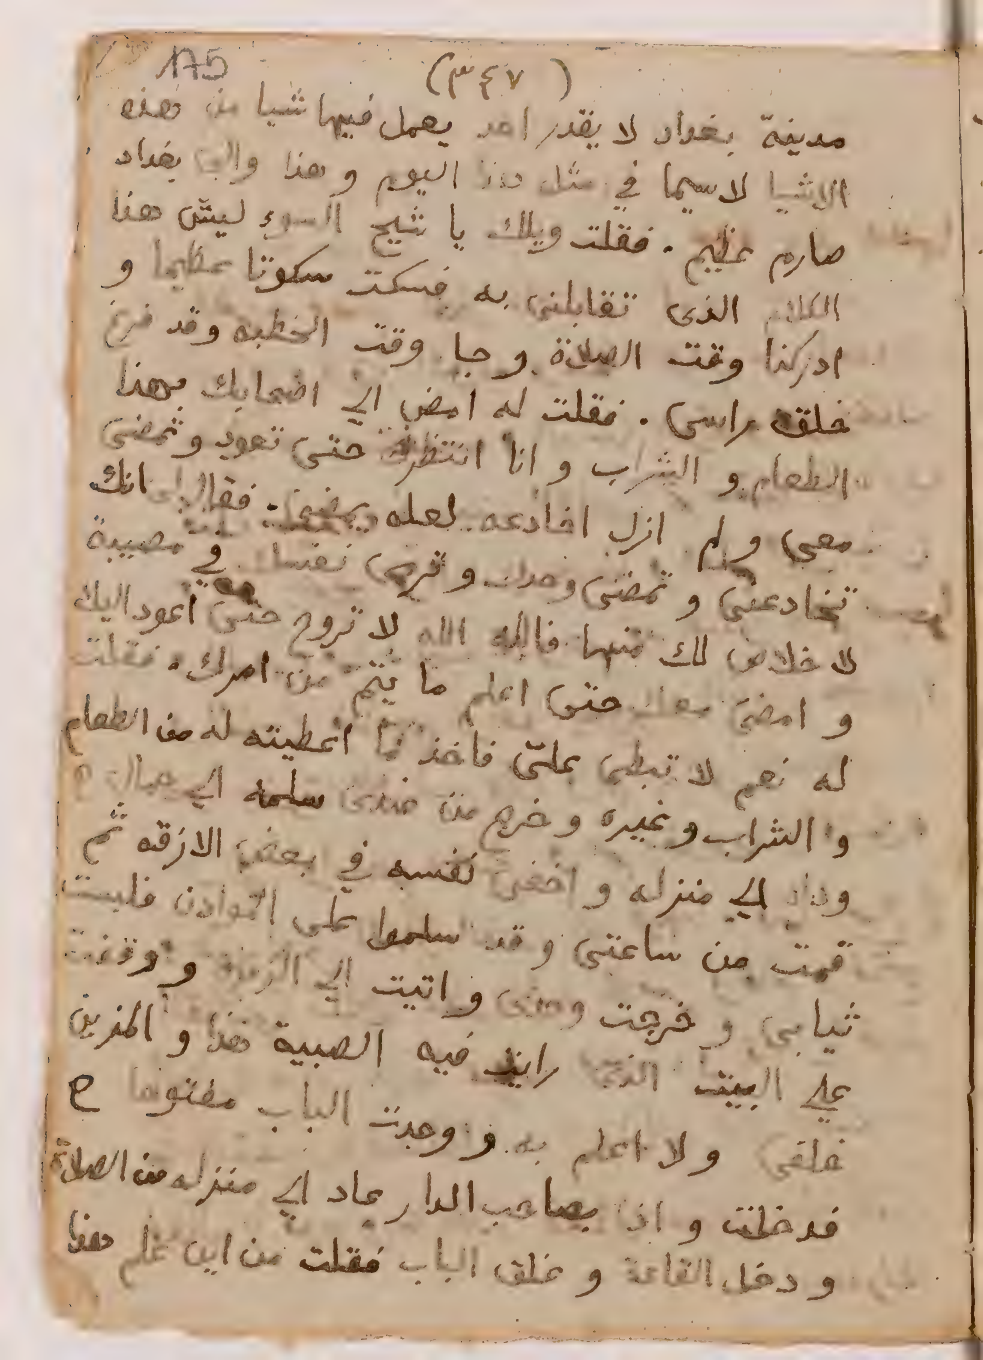 175
(٣٤٧)
مدينة بغداد لا يقدر احد يعمل فيها شيا من هذه
الاشيا لاسيما في مثل هذا اليوم وهذا والي بغداد
صارم عظيم . فقلت ويلك يا شيح السوء ليش هذا
الكلام الذى تقابلنى به فسكت سكوتا عظيما و
ادركنا وقت الصلاة وجا وقت الخطبه وقد فرغ
خلق راسى . فقلت له امض الي اصحابك بهذا
الطعام و الشراب و انا انتظرك حتى تعود وتمضى
معى و لم ازل اخادعه لعله يمضى . فقال لى انك
تخادعنى و تمضى وحدك و ترمى نفسك في مصيبة
لا خلاص لك منها فالله الله لا تروح حتى اعود اليك
و امضى معك حتى اعلم ما يتم من امرك . فقلت
له نعم لا تبطى علىّ فاخذ ما اعطيته له من الطعام
و الشراب و غيره و خرج من عندى سلمه الي حمال
الي منزله و اخفى نفسه في بعض الازقه ثم
قمت من ساعتى و قد سلموا على الموادن فلبست
ثيابى و خرجت وحدى و اتيت الي الزقاق و وقفت
علي البيت الذى رايت فيه الصبية هذا و المزين
خلفى و لا اعلم به و وجدت الباب مفتوحا
فدخلت و اذا بصاحب الدار عاد الي منزله من الصلاة
و دخل القاعة و غلق الباب فقلت من اين علم هذا